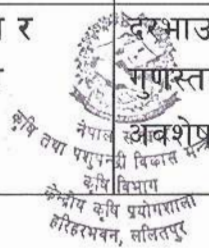 र
दरभाउ
गुणस्त
अवशेष
नेपाल
कृषि तथा पशुपन्छी विकास मन्
कृषि विभाग
केन्द्रीय कृषि प्रयोगशाला
हरिहरभवन, ललितपुर